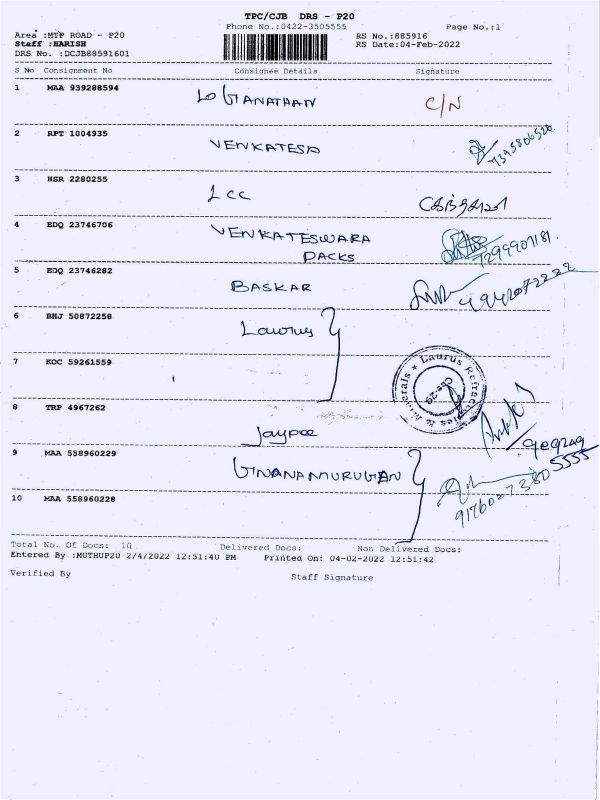 TPC/CJB DRS - P20
Phone No.:0422-3505555 Page No.:1
Area :MTP ROAD - P20 RS No.:885916
Staff :HARISH RS Date:04-Feb-2022
DRS No. :DCJB88591601
S No Consignment No Consignee Details Signature
1 MAA 939288594 LOGANATHAN C/N
2 RPT 1004935 VENKATESH
7395806520
3 HSR 2280255 LCC
4 EDQ 23746706 VENKATESWARA
PACKS 7299907181
5 EDQ 23746282 BASKAR
6 BHJ 50872258 Laurus
7 KOC 59261559
Laurus Refractories & Minerals
Cbe-29
8 TRP 4967262
Jaypee
9 MAA 558960229 GNANAMURUGAN
10 MAA 558960228
Total No. Of Docs: 10 Delivered Docs: Non Delivered Docs:
Entered By :MUTHUP20 2/4/2022 12:51:40 PM Printed On: 04-02-2022 12:51:42
Verified By Staff Signature